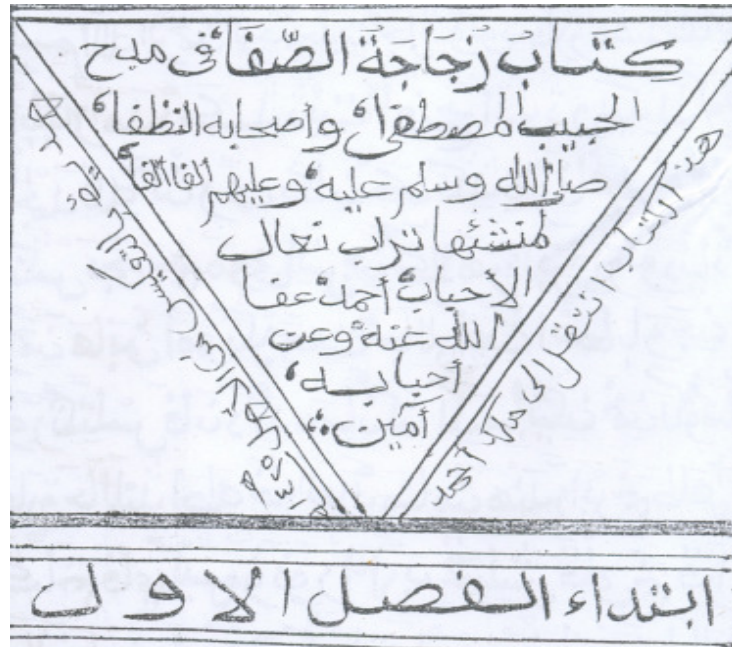 كتاب زجاجة الصفا فى مدح
الحبيب المصطفى وأصحابه النظفا
صلى الله وسلم عليه وعليهم ألفا ألفا
لمنشئها تراب نعال
الاحباب أحمد عفا
الله عنه وعن
أحبابه
أمين
هذا الكتاب انتقل الى ملك احمد
ابتداء الفصل الاول